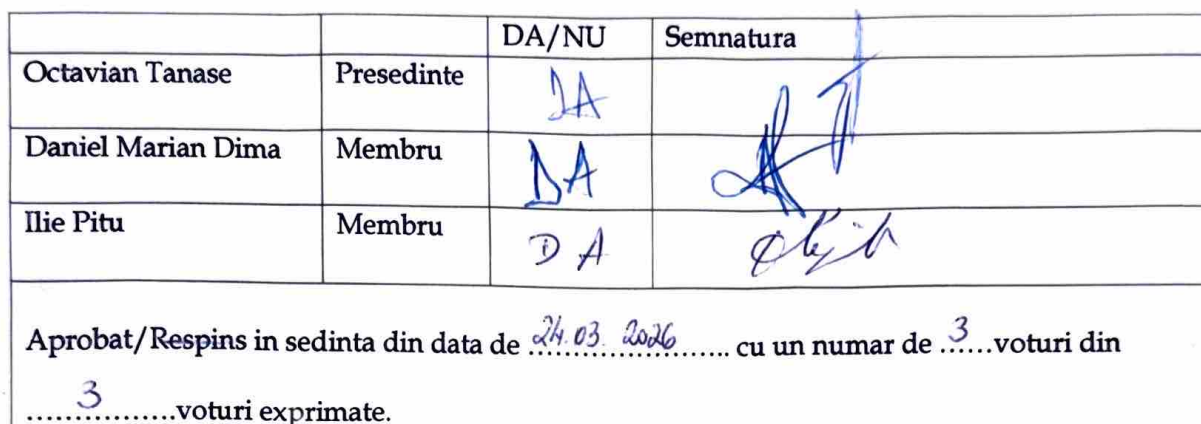 DA/NU Semnatura
Octavian Tanase Presedinte DA
Daniel Marian Dima Membru DA
Ilie Pitu Membru DA
Aprobat/Respins in sedinta din data de 24.03.2026 cu un numar de 3 voturi din
3 voturi exprimate.